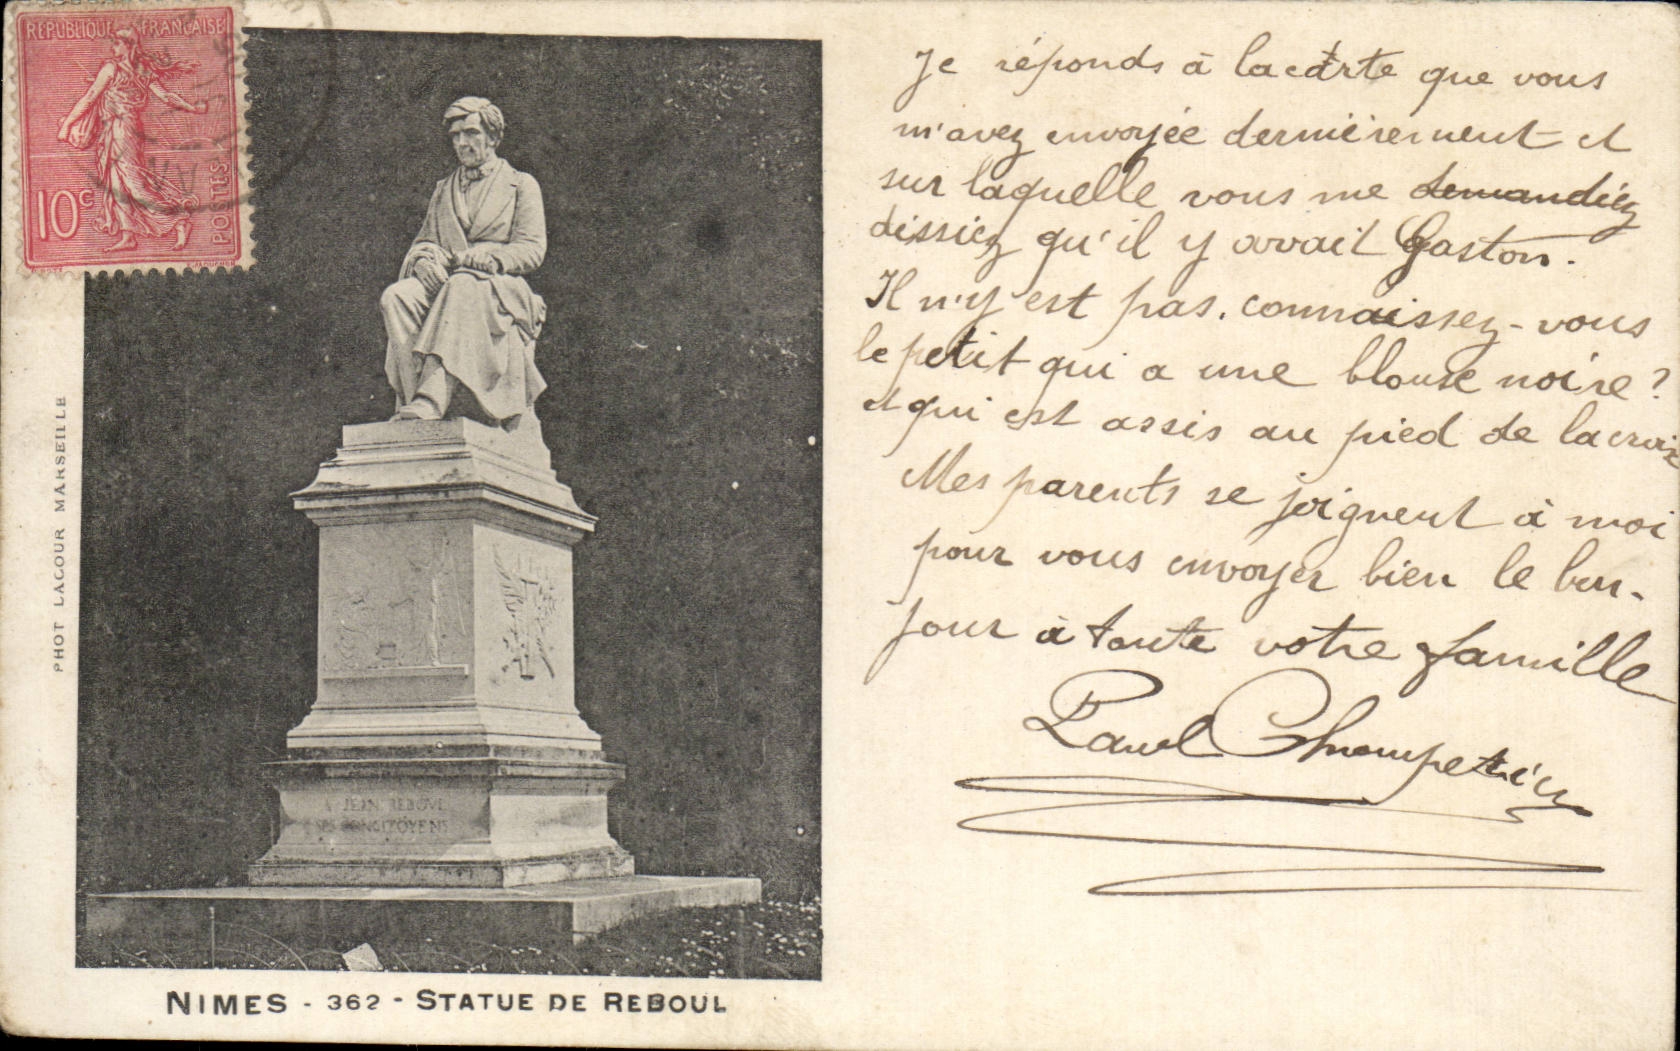 REPUBLIQUE FRANÇAISE
10c
POSTES
PHOT LACOUR MARSEILLE
A JEAN REBOUL
SES CONCITOYENS
NIMES - 362 - STATUE DE REBOUL
Je réponds à la carte que vous
m'avez envoyée dernièrement et
sur laquelle vous me demandiez
dissiez qu'il y avait Gaston.
Il n'y est pas. connaissez-vous
le petit qui a une blouse noire ?
et qui est assis au pied de la croix
Mes parents se joignent à moi
pour vous envoyer bien le bon-
jour à toute votre famille
Paul Champetier